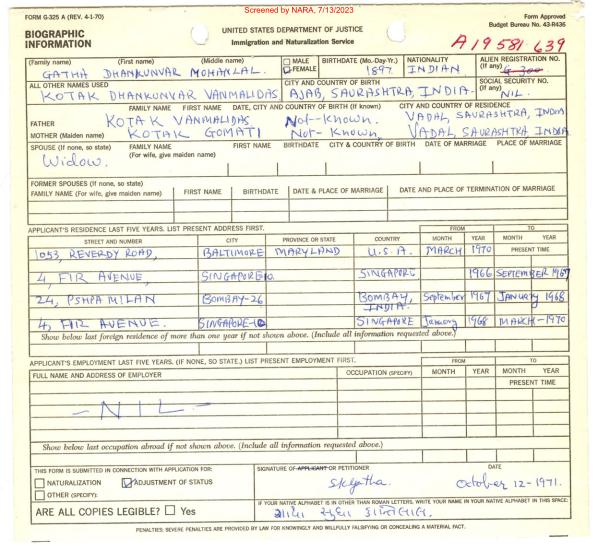 Screened by NARA, 7/13/2023
FORM G-325 A (REV. 4-1-70)
Form Approved
Budget Bureau No. 43-R436
BIOGRAPHIC INFORMATION
UNITED STATES DEPARTMENT OF JUSTICE
Immigration and Naturalization Service
A19 581 639
(Family name) (First name) (Middle name) MALE FEMALE BIRTHDATE (Mo.-Day-Yr.) NATIONALITY ALIEN REGISTRATION NO. (If any)
GATHA DHANKUNVAR MOHANLAL. 1897. INDIAN G-300
ALL OTHER NAMES USED CITY AND COUNTRY OF BIRTH SOCIAL SECURITY NO. (If any)
KOTAK DHANKUNVAR VANMALIDAS AJAB, SAURASHTRA, INDIA NIL.
FAMILY NAME FIRST NAME DATE, CITY AND COUNTRY OF BIRTH (If known) CITY AND COUNTRY OF RESIDENCE
FATHER KOTAK VANMALIDAS Not-Known. VADAL, SAURASHTRA, INDIA
MOTHER (Maiden name) KOTAK GOMATI Not-Known, VADAL, SAURASHTRA INDIA
SPOUSE (If none, so state) FAMILY NAME (For wife, give maiden name) FIRST NAME BIRTHDATE CITY & COUNTRY OF BIRTH DATE OF MARRIAGE PLACE OF MARRIAGE
Widow.
FORMER SPOUSES (If none, so state)
FAMILY NAME (For wife, give maiden name) FIRST NAME BIRTHDATE DATE & PLACE OF MARRIAGE DATE AND PLACE OF TERMINATION OF MARRIAGE
APPLICANT'S RESIDENCE LAST FIVE YEARS. LIST PRESENT ADDRESS FIRST. FROM TO
STREET AND NUMBER CITY PROVINCE OR STATE COUNTRY MONTH YEAR MONTH YEAR
PRESENT TIME
1053, REVERDY ROAD, BALTIMORE MARYLAND U.S.A. MARCH 1970
4, FIR AVENUE, SINGAPORE-10. SINGAPORE 1966 SEPTEMBER 1967
24, PSHPA MILAN BOMBAY-26 BOMBAY, INDIA. September 1967 JANUARY 1968
4, FIR AVENUE. SINGAPORE-10 SINGAPORE January 1968 MARCH-1970
Show below last foreign residence of more than one year if not shown above. (Include all information requested above.)
APPLICANT'S EMPLOYMENT LAST FIVE YEARS. (IF NONE, SO STATE.) LIST PRESENT EMPLOYMENT FIRST. FROM TO
FULL NAME AND ADDRESS OF EMPLOYER OCCUPATION (SPECIFY) MONTH YEAR MONTH YEAR
PRESENT TIME
-NIL-
Show below last occupation abroad if not shown above. (Include all information requested above.)
THIS FORM IS SUBMITTED IN CONNECTION WITH APPLICATION FOR: SIGNATURE OF APPLICANT OR PETITIONER DATE
NATURALIZATION ADJUSTMENT OF STATUS October 12-1971.
OTHER (SPECIFY):
IF YOUR NATIVE ALPHABET IS IN OTHER THAN ROMAN LETTERS, WRITE YOUR NAME IN YOUR NATIVE ALPHABET IN THIS SPACE:
ARE ALL COPIES LEGIBLE? Yes
PENALTIES: SEVERE PENALTIES ARE PROVIDED BY LAW FOR KNOWINGLY AND WILLFULLY FALSIFYING OR CONCEALING A MATERIAL FACT.